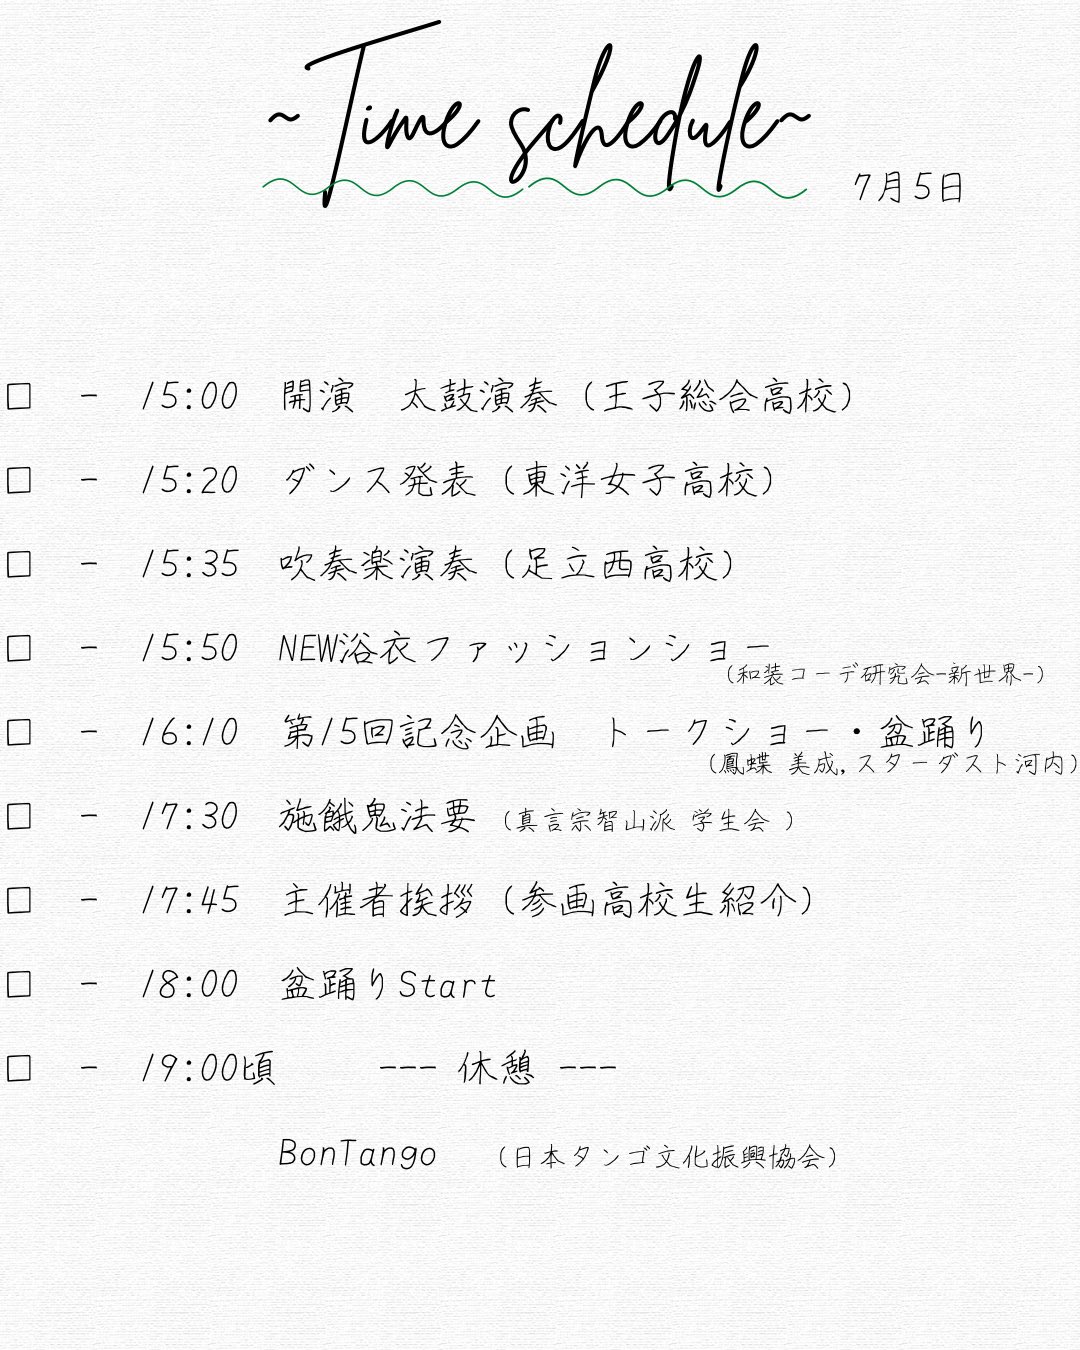 ~Time schedule~
7月5日
□ - 15:00 開演　太鼓演奏（王子総合高校）
□ - 15:20 ダンス発表（東洋女子高校）
□ - 15:35 吹奏楽演奏（足立西高校）
□ - 15:50 NEW浴衣ファッションショー
（和装コーデ研究会-新世界-）
□ - 16:10 第15回記念企画　トークショー・盆踊り
（鳳蝶 美成,スターダスト河内）
□ - 17:30 施餓鬼法要（真言宗智山派 学生会 ）
□ - 17:45 主催者挨拶（参画高校生紹介）
□ - 18:00 盆踊りStart
□ - 19:00頃 --- 休憩 ---
BonTango （日本タンゴ文化振興協会）